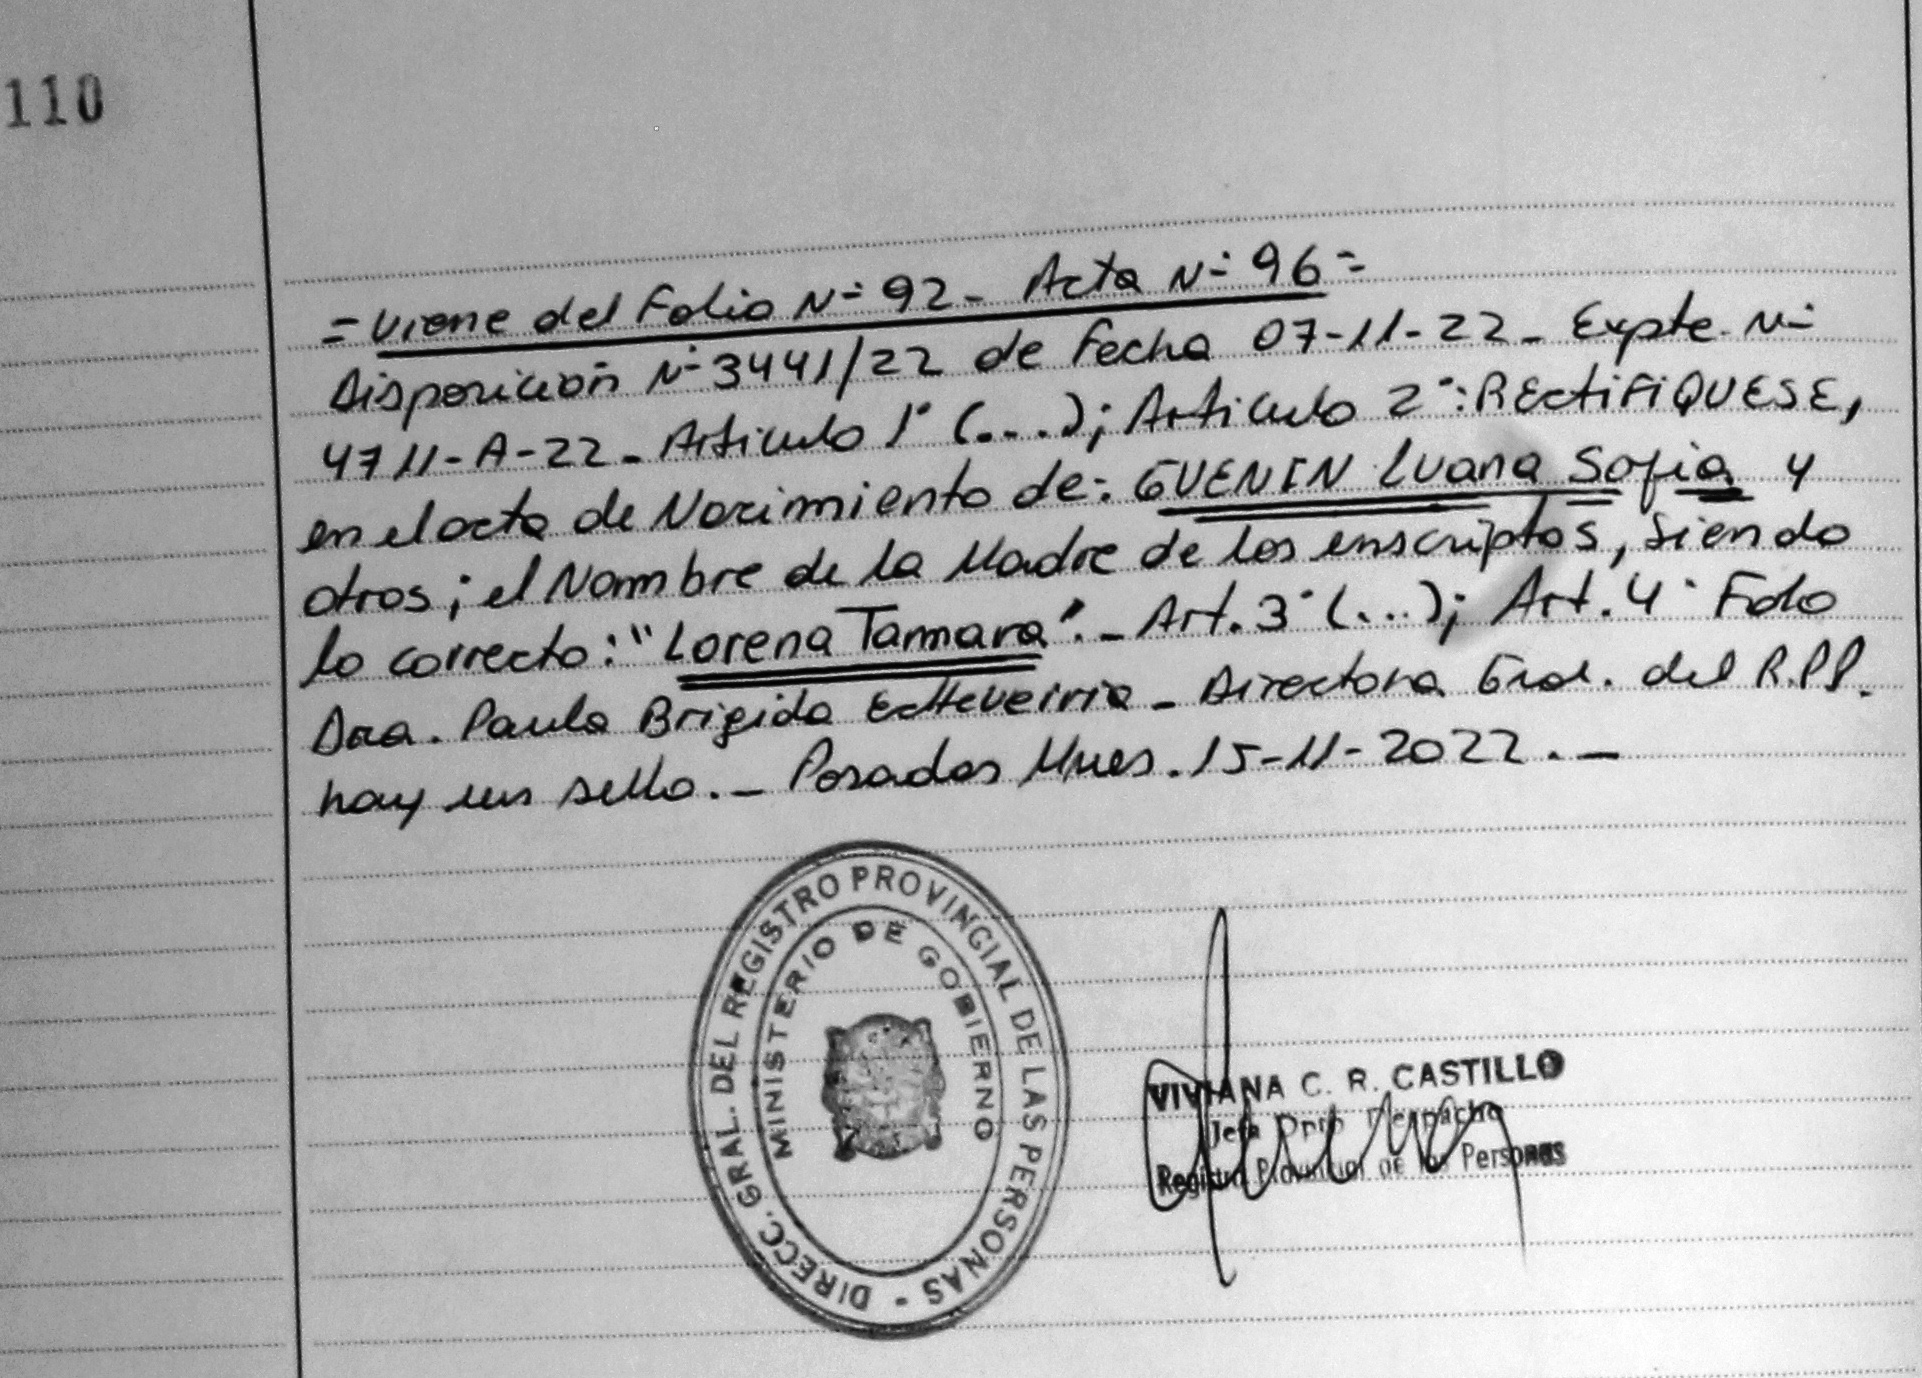 110
= Viene del Folio N° 92 - Acta N° 96 =
Disposición N° 3441/22 de Fecha 07-11-22 - Expte. N°
4711-A-22 - Articulo 1° (...); Articulo 2°: RECTIFIQUESE,
en el acta de Nacimiento de: GUENIN Luana Sofia y
otros; el Nombre de la Madre de los inscriptos, siendo
lo correcto: "Lorena Tamara". - Art. 3° (...); Art. 4° Fdo
Dra. Paula Brigida Echeverria - Directora Gral. del R.P.P.
hay un sello. - Posadas Mnes. 15-11-2022. -
DIRECC. GRAL. DEL REGISTRO PROVINCIAL DE LAS PERSONAS -
MINISTERIO DE GOBIERNO
VIVIANA C. R. CASTILLO
Jefa Dpto Despacho
Registro Provincial de las Personas